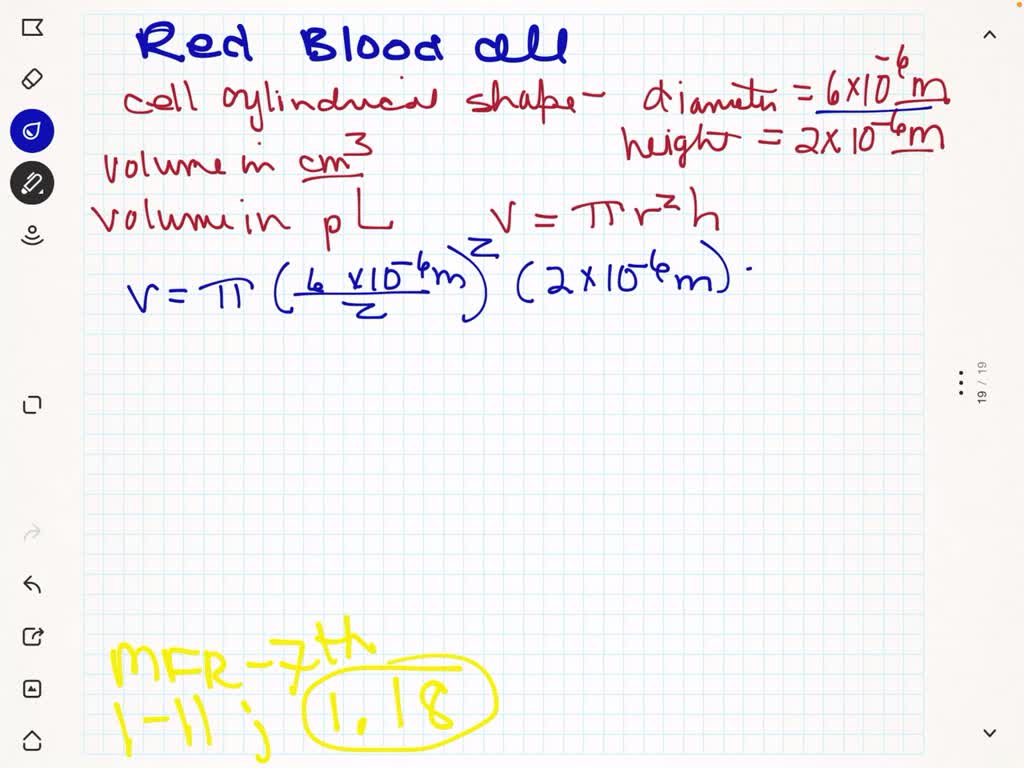 Red Blood cell
cell cylindrical shape - diameter = 6×10⁻⁶ m
height = 2×10⁻⁶ m
volume in cm³
volume in pL V = πr²h
V = π (6×10⁻⁶m / 2)² (2×10⁻⁶m) ·
19 / 19
MFR-7th
1-11 j 1.18